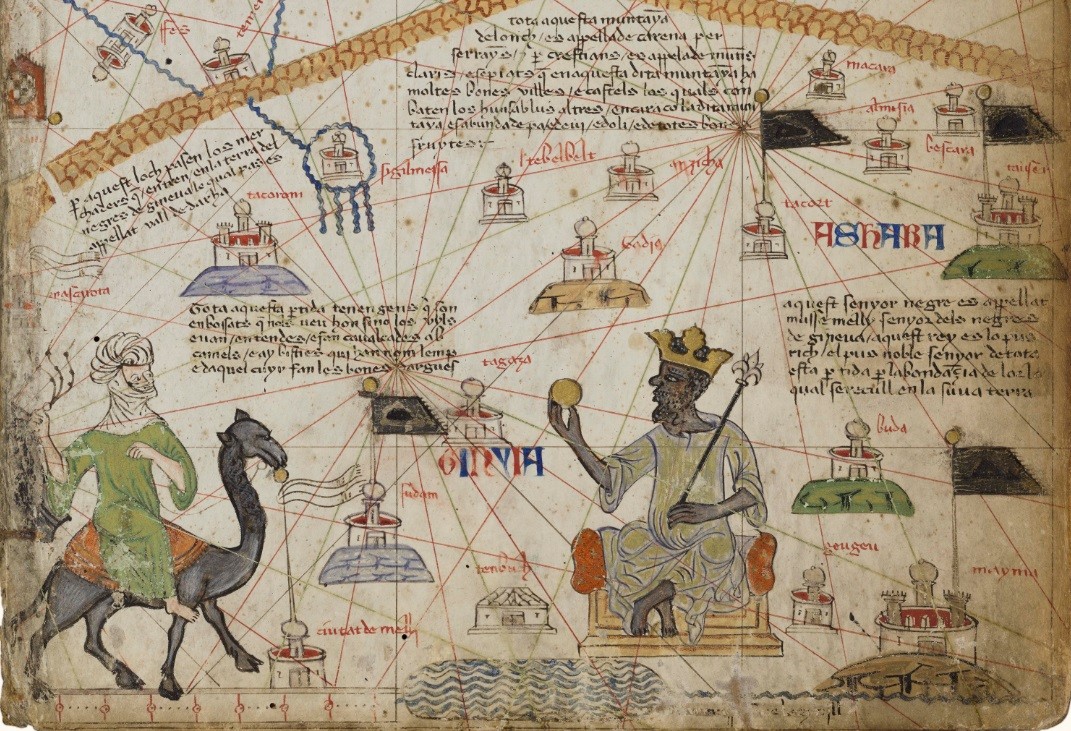 fes
tota aquesta muntaya
de lonch / es appellade carena per
serrayns / 7 p crestians / es appelade muns
claris / e sepiats q en aquesta dita muntaya ha
moltes bones villes / e castels los quals con
baten los huns ab lus altres / encara co la dita mun
taya es abunda de pa e de vi / e d oli / e de totes bones
fruytes
macara
almisia
bescara
p aquest loch pasen los mer
chaders q entren en la terra del
negres de gineua lo qual pas es
appellat vall de darha
sigilmessa
tacoroni
tacort
ASHARA
Tota aquesta ptida tenen gens q son
enboçats q nols veu hom sino los vyls
e van en tendes / e fan caualcades ab
camels / e ay bisties qui han nom lemp
e daquel cuyr fan les bones dargues
aquest senyor negre es appellat
musse melly senyor dels negres
de gineua / aquest rey es lo pus
rich / el pus noble senyor de tota
esta ptida p labondançia de lor lo
qual se recull en la sua terra
tagaza
GINYIA
buda
sudam
tenbuch
geugeu
mayma
ciutat de melly